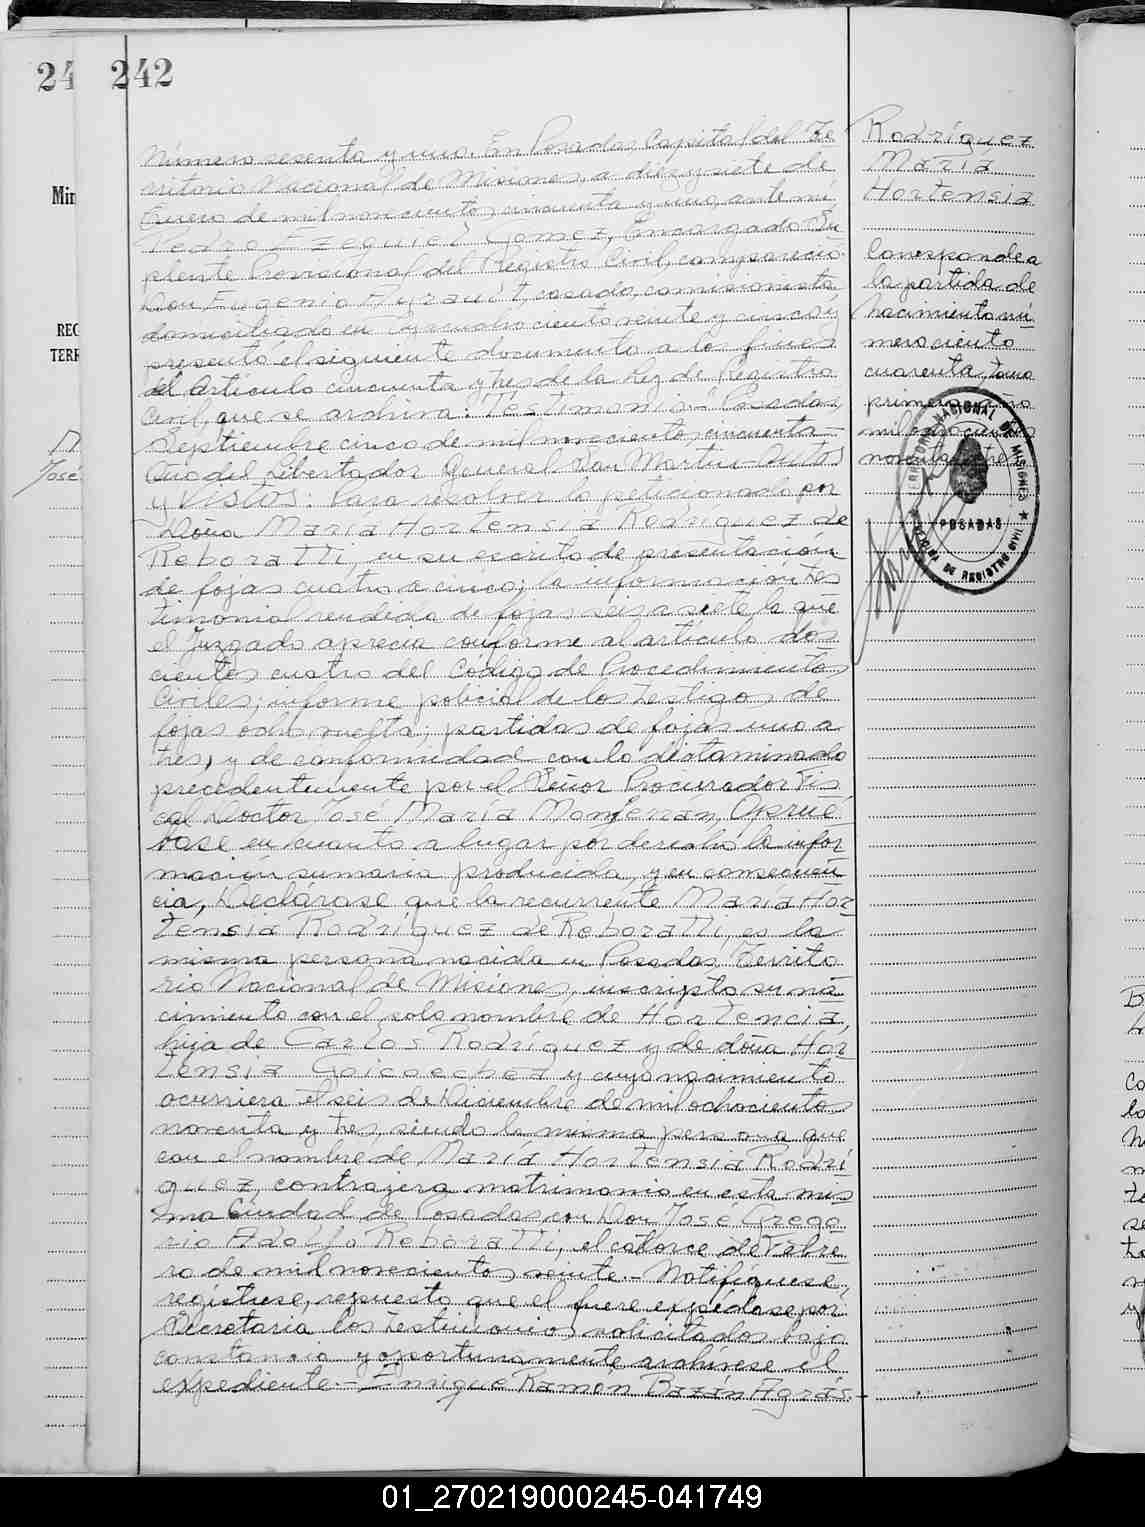 24
242
Min
REG
TERR
José
Número sesenta y uno. En Posadas Capital del Te
rritorio Nacional de Misiones, a diez y siete de
Enero de mil novecientos cincuenta y uno, ante mí
Pedro Ezequiel Gomez, Encargado Su
plente Provisional del Registro Civil, compareció
Don Eugenio casado, comisionista
domiciliado en Ayacucho ciento veinte y cinco y
presentó el siguiente documento a los fines
del artículo cincuenta y tres de la Ley de Registro
Civil, que se archiva: "Testimonio: "Posadas,
Septiembre cinco de mil novecientos cincuenta
Año del Libertador General San Martín - Autos
y Vistos: Para resolver lo peticionado por
Doña María Hortensia Rodríguez de
Reboratti, en su escrito de presentación
de fojas cuatro a cinco; la información tes
timonial rendida de fojas seis a siete la que
el Juzgado aprecia conforme al artículo dos
cientos cuatro del Código de Procedimientos
Civiles; informe policial de los testigos de
fojas ocho vuelta; partidas de fojas uno a
tres, y de conformidad con lo dictaminado
precedentemente por el Señor Procurador Fis
cal Doctor José María Monferrán, Aprué
base en cuanto a lugar por derecho la infor
mación sumaria producida, y en consecuen
cia, Declárase que la recurrente María Hor
tensia Rodríguez de Reboratti, es la
misma persona nacida en Posadas Territo
rio Nacional de Misiones, inscripto su na
cimiento con el solo nombre de Hortencia,
hija de Carlos Rodríguez y de doña Hor
tensia Goicoechea y cuyo nacimiento
ocurriera el seis de Diciembre de mil ochocientos
noventa y tres, siendo la misma persona que
con el nombre de María Hortensia Rodrí
guez, contrajera matrimonio en esta mis
ma Ciudad de Posadas, con Don José Grego
rio Adolfo Reboratti, el catorce de Febre
ro de mil novecientos veinte.- Notifíquese,
regístrese, repuesto que el fuere expídase por
Secretaría los testimonios solicitados bajo
constancia y oportunamente archívese el
expediente.- Enrique Ramón Bazán Agrás.-
Rodríguez
María
Hortensia
Corresponde a
la partida de
Nacimiento nú
mero ciento
cuarenta, tomo
primero, año
mil ochocientos
noventa y tres
TERRITORIO NACIONAL DE MISIONES
POSADAS
OFICINA DE REGISTRO CIVIL
01_270219000245-041749